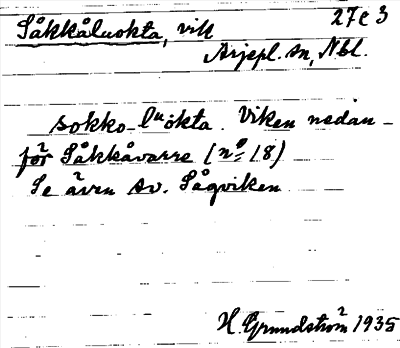 27e3
Såkkåluokta, vik
Arjepl. sn, Nbl.
sokko-luokta. Viken nedan-
för Såkkåvarre (nº 18)
Se även sv. Sågviken
H. Grundström 1935